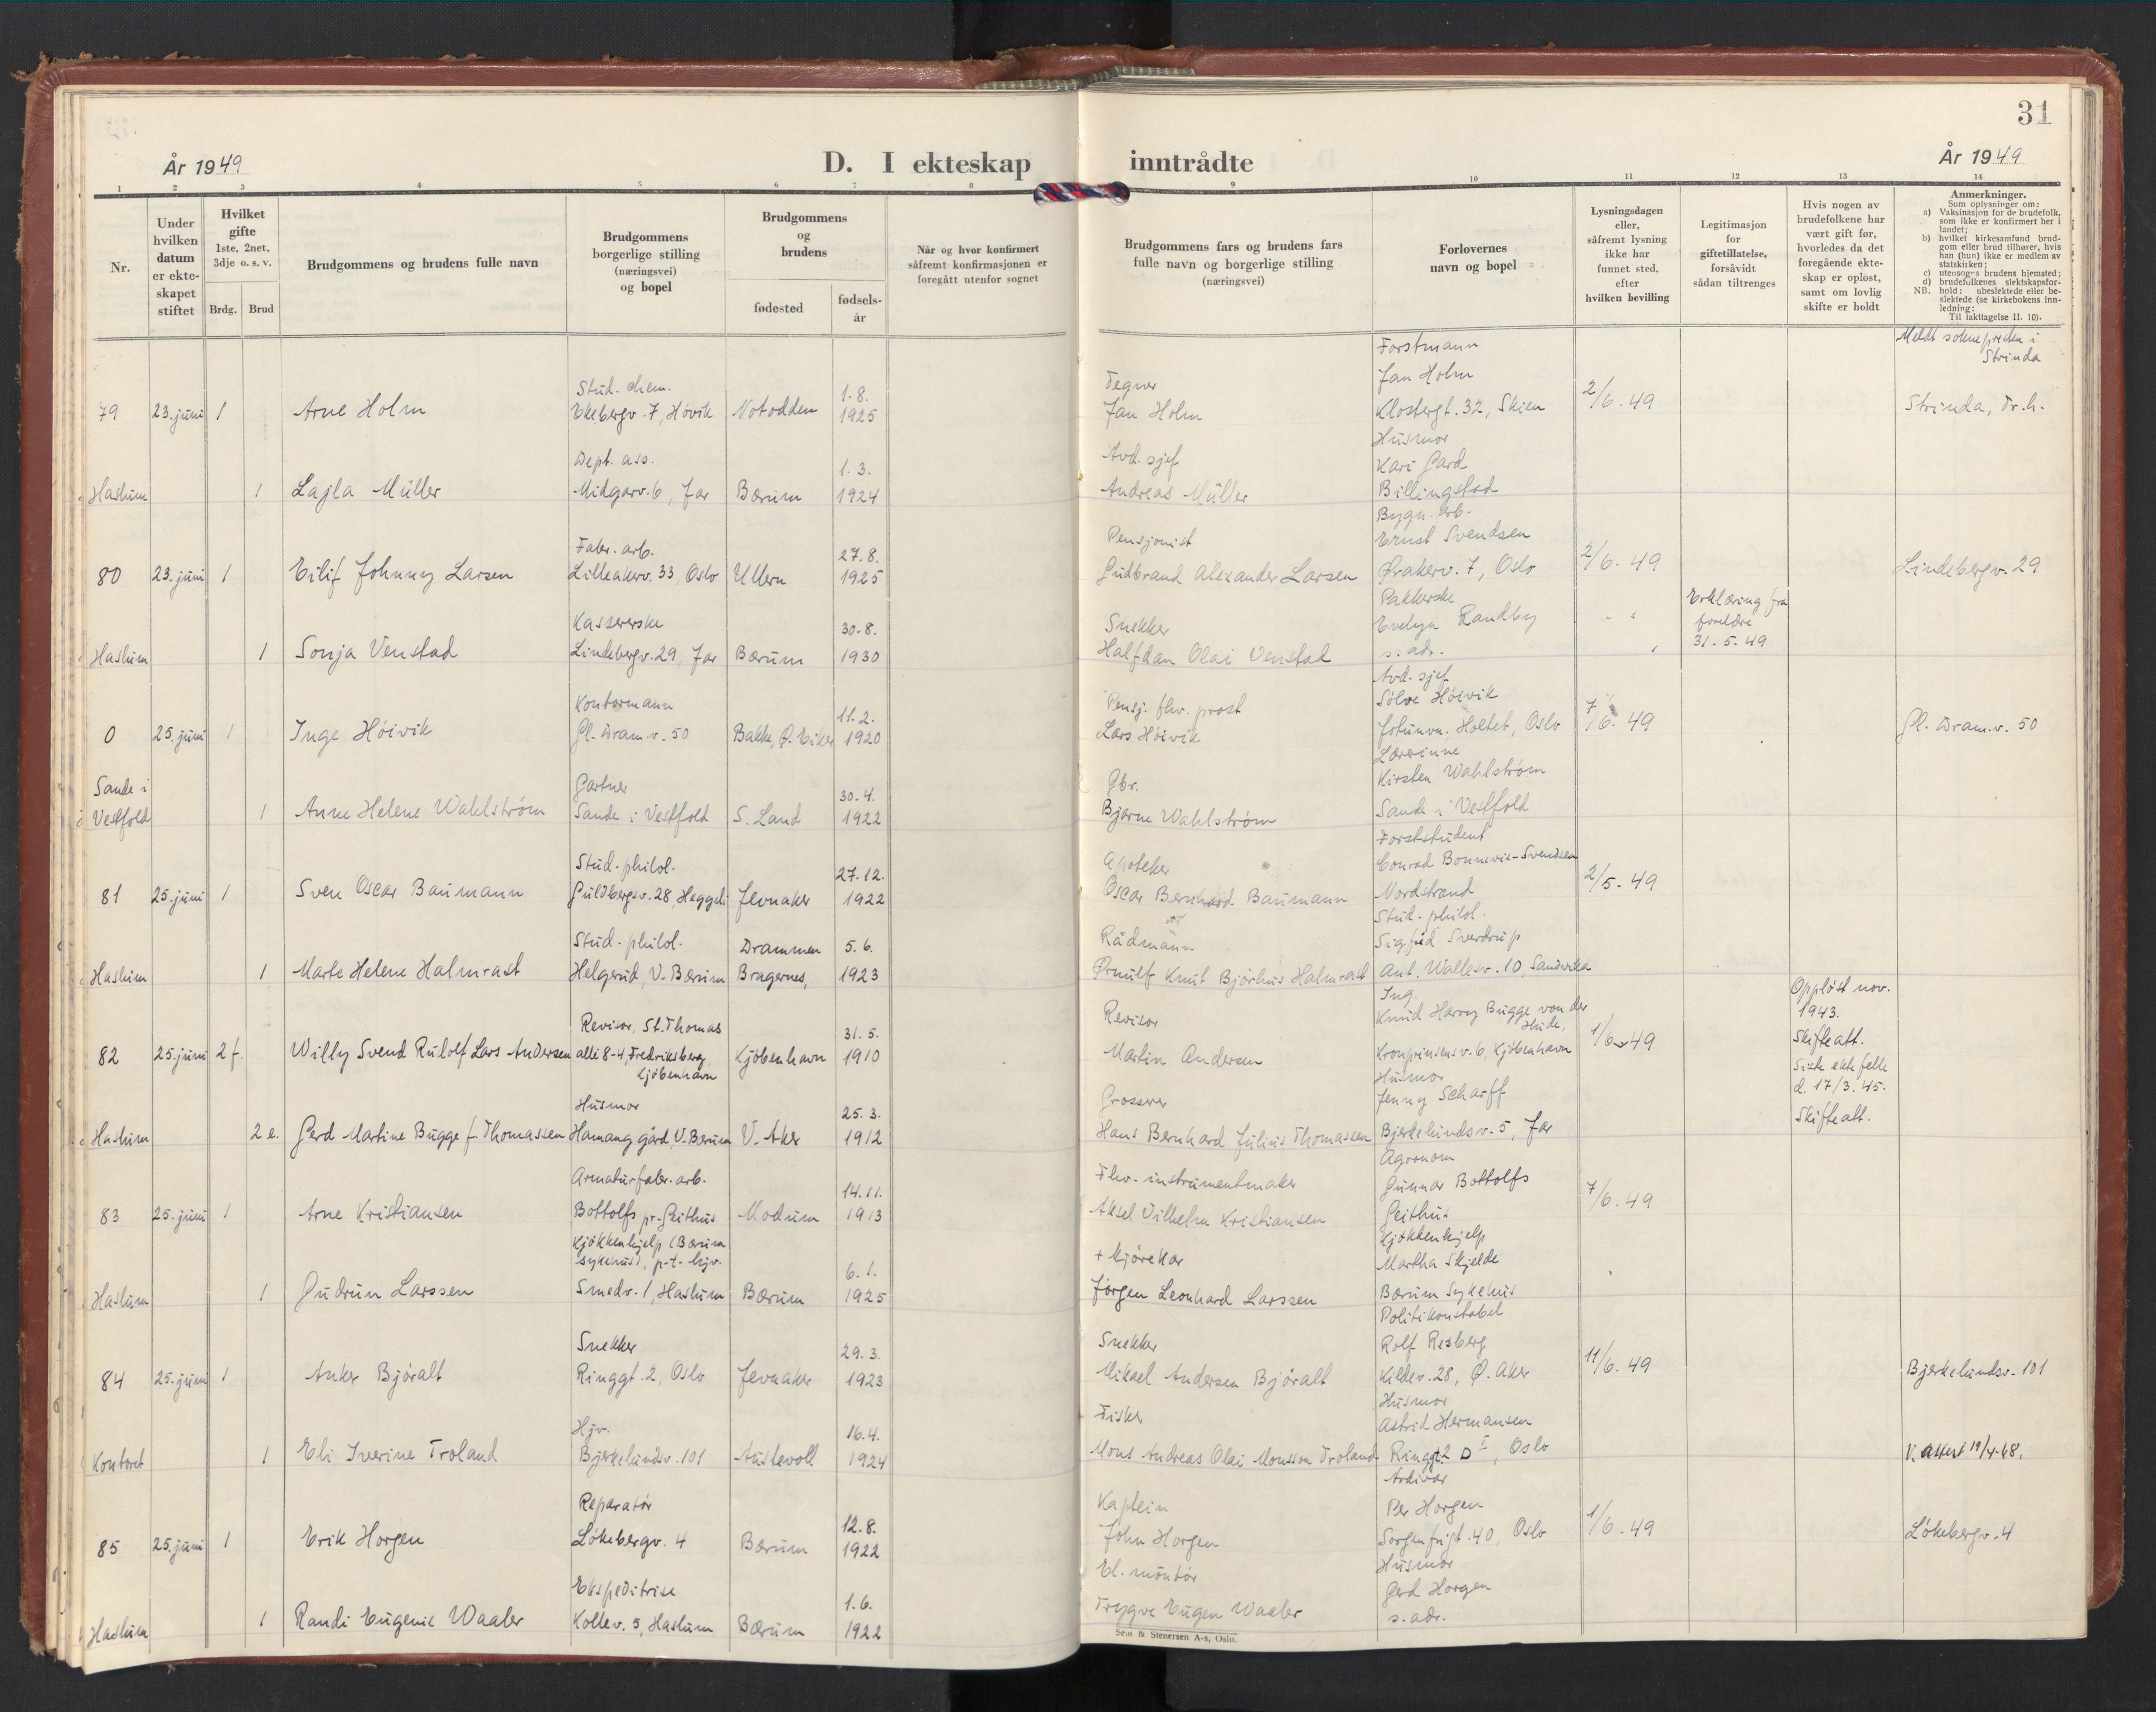 31
År 1949
D. I ekteskap inntrådte
År 1949
1 2 3 4 5 6 7 8 9 10 11 12 13 14
Nr.
Under hvilken datum er ekteskapet stiftet
Hvilket gifte 1ste, 2net, 3dje o. s. v.
Brdg. Brud
Brudgommens og brudens fulle navn
Brudgommens borgerlige stilling (næringsvei) og bopel
Brudgommens og brudens
fødested
fødsels-år
Når og hvor konfirmert såfremt konfirmasjonen er foregått utenfor sognet
Brudgommens fars og brudens fars fulle navn og borgerlige stilling (næringsvei)
Forlovernes navn og bopel
Lysningsdagen eller, såfremt lysning ikke har funnet sted, efter hvilken bevilling
Legitimasjon for giftetillatelse, forsåvidt sådan tiltrenges
Hvis nogen av brudefolkene har vært gift før, hvorledes da det foregående ekteskap er opløst, samt om lovlig skifte er holdt
Anmerkninger.
Som oplysninger om:
a) Vaksinasjon for de brudefolk, som ikke er konfirmert her i landet;
b) hvilket kirkesamfund brudgom eller brud tilhører, hvis han (hun) ikke er medlem av statskirken;
c) utensogns brudens hjemsted;
d) brudefolkenes slektskapsforhold: ubeslektede eller beslektede (se kirkebokens innledning:
NB.
Til iakttagelse II. 10).
Meldt soknepresten i Strinda
79 23. juni 1 Arne Holm
Stud. chem.
Ekebergv. 7, Høvik
Notodden
1.8.
1925
Tegner
Jan Holm
Forstmann
Jan Holm
Klostergt. 32, Skien
2/6. 49
Strinda, Tr.h.
Haslum 1 Lajla Müller
Dept. ass.
Midgarv. 6, Jar
Bærum
1. 3.
1924
Avd. sjef
Andreas Müller
Husmor
Kari Gard
Billingstad
80 23. juni 1 Eilif Johnny Larsen
Fabr. arb.
Lilleakerv. 33, Oslo
Ullern
27.8.
1925
Pensjonist
Gudbrand Alexander Larsen
Bygn. arb.
Ernst Svendsen
Ørakerv. 7, Oslo
2/6. 49
Lindebergv. 29
Haslum 1 Sonja Venstad
Kassererske
Lindebergv. 29, Jar
Bærum
30.8.
1930
Snekker
Halfdan Olai Venstad
Pakkerske
Evelyn Randby
s. adr.
Erklæring fra foreldre
31. 5. 49
0 25. juni 1 Inge Höivik
Kontormann
Gl. Dram.v. 50
Bakke, Ø. Eiker
11. 2.
1920
Pensj. fhv. prost
Lars Höivik
Avd. sjef
Sölve Höivik
Jotunvn. Holtet, Oslo
7/6. 49
Gl. Dram.v. 50
Sande i Vestfold 1 Anne Helene Wahlström
Gartner
Sande i Vestfold
S. Land
30.4.
1922
Gbr.
Bjarne Wahlström
Lærerinne
Kirsten Wahlström
Sande i Vestfold
81 25. juni 1 Sven Oscar Baumann
Stud. philol.
Guldbergsv. 28, Heggeli
Jevnaker
27.12.
1922
Apoteker
Oscar Bernhard Baumann
Forststudent
Conrad Bonnevie-Svendsen
Nordstrand
2/5. 49
Haslum 1 Marte Helene Halmrast
Stud. philol.
Helgerud, V. Bærum
Drammen
Bragernes,
5. 6.
1923
Rådmann
Ørnulf Knut Björhus Halmrast
Stud. philol.
Sigfrid Sverdrup
Ant. Wallesv. 10, Sandvika
82 25. juni 2 f. Willy Svend Rudolf Lars Andersen
Revisor, St. Thomas
alle 8-4, Fredriksberg
Kjöbenhavn
Kjöbenhavn
31. 5.
1910
Revisor
Martin Andersen
Ing.
Knud Harry Bugge von der Hude,
Kronprinsensv. 6, Kjöbenhavn
1/6. 49
Opplöst nov. 1943.
Skifteatt.
Haslum 2 e. Gerd Martine Bugge f. Thomassen
Husmor
Hamang gård, V. Bærum
V. Aker
25. 3.
1912
Grosserer
Hans Bernhard Julius Thomassen
Husmor
Jenny Scharff
Bjerkelundsv. 5, Jar
Siste ektefelle
d. 17/3. 45.
Skifteatt.
83 25. juni 1 Arne Kristiansen
Armaturfabr. arb.
Bottolfs pr. Geithus
Modum
14.11.
1913
Fhv. instrumentmaker
Aksel Vilhelm Kristiansen
Agronom
Gunnar Bottolfs
Geithus
7/6. 49
Haslum 1 Gudrun Larssen
Kjökkenhjelp (Bærum
sykehus), p.t. hjv.
Smedv. 1, Haslum
Bærum
6. 1.
1925
+ kjörekar
Jørgen Leonhard Larssen
Kjökkenhjelp
Martha Skjelde
Bærum Sykehus
84 25. juni 1 Anker Björalt
Snekker
Ringgt. 2, Oslo
Jevnaker
29. 3.
1923
Snekker
Mikael Andersen Björalt
Politikonstabel
Rolf Resberg
Kildev. 28, Ø. Aker
11/6. 49
Bjerkelundsv. 101
Kontoret 1 Eli Iverine Troland
Hjv.
Bjerkelundsv. 101
Austevoll
16.4.
1924
Fisker
Mons Andreas Olai Monsson Troland
Husmor
Astrid Hermansen
Ringgt. 2 D I, Oslo
V. attest 19/4-48.
85 25. juni 1 Erik Horgen
Reparatör
Lökebergv. 4
Bærum
12.8.
1922
Kaptein
John Horgen
Arkivar
Per Horgen
Sorgenfrigt. 40, Oslo
1/6. 49
Lökebergv. 4
Haslum 1 Randi Eugenie Waaler
Ekspeditrise
Kollev. 5, Haslum
Bærum
1. 6.
1922
El. montör
Trygve Eugen Waaler
Husmor
Gerd Horgen
s. adr.
Sem & Stenersen A-s, Oslo.